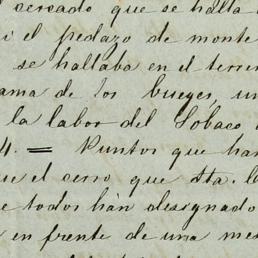 cercado que se halla
i el pedazo de monte
se hallaba en el terren
ama de los bueyes, un
la labor del Lobaco
4. = Puntos que han
ue el cerro que dta. l
e todos hán designado
en frente de una mes